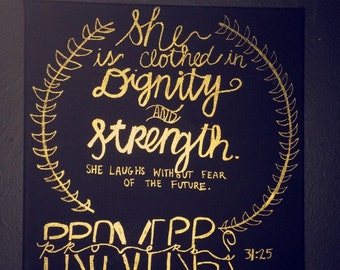 She
is clothed in
Dignity
AND
Strength.
SHE LAUGHS WITHOUT FEAR
OF THE FUTURE.
PROVERBS
proverbs 31:25